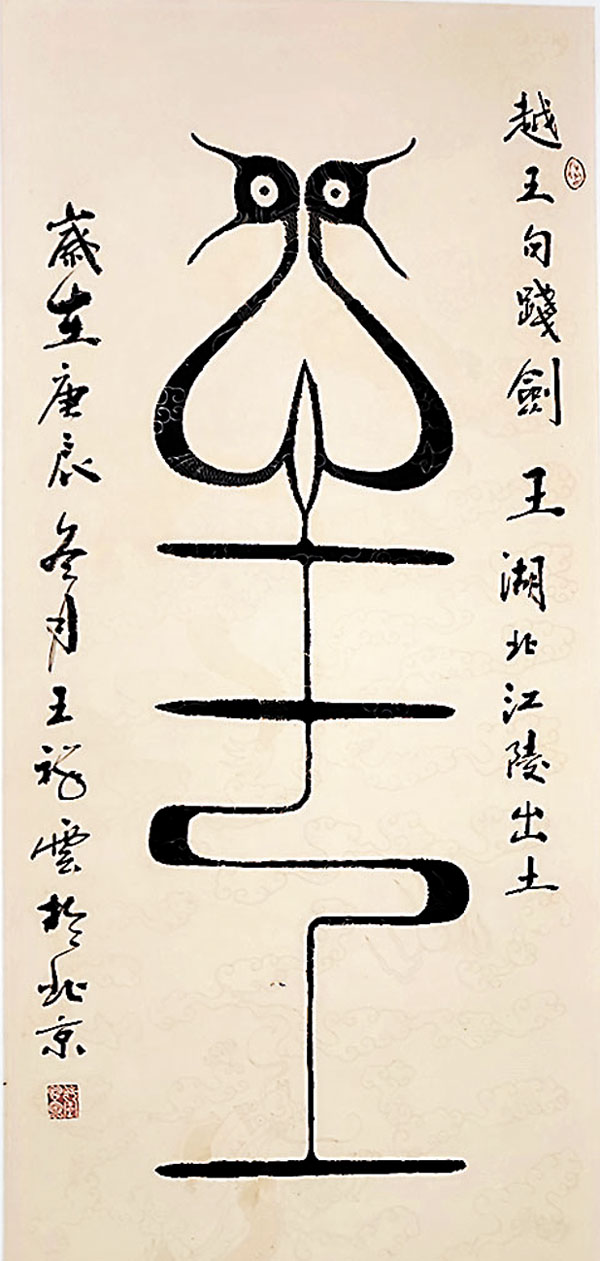 越王句踐劍 王 湖北江陵出土
王
歲在庚辰冬月王祥雲於北京